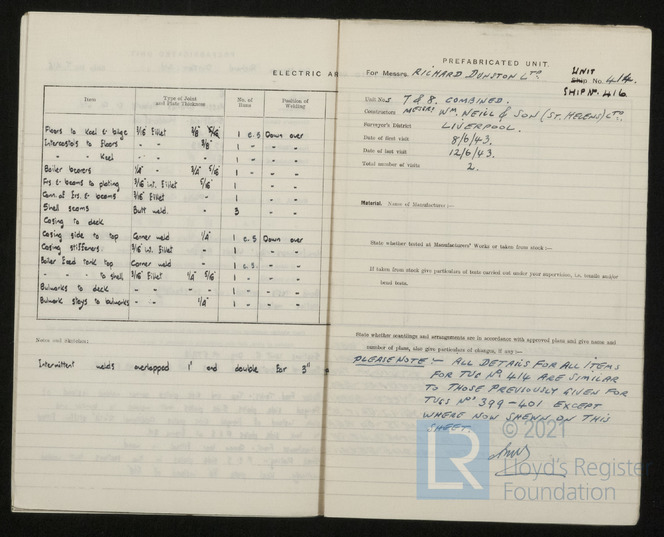 ELECTRIC AR
Item Type of Joint and Plate Thickness No. of Runs Position of Welding
Floors to Keel & bilge 3/16 Fillet 3/8" 5/16" 1 e.s Down over
Intercostals to Floors " - 3/8" 1 - -
" " Keel - - 1 - -
Boiler bearers 1/4" - 3/4" 5/16" 1 - -
Frs & beams to plating 3/16" Int. Fillet 5/16" 1 - -
Conn. of Frs. & beams 3/16" Fillet - 1 - -
Shell seams Butt weld. - 3 - -
Casing to deck
Casing side to top Corner weld 1/4" 1 e.s Down over
Casing stiffeners. 3/16 Int. Fillet - 1 - -
Boiler Feed tank top Corner weld - 1 e.s. -
- - - to shell 3/16" Fillet 1/4" 5/16" 1 - -
Bulwarks to deck - - 1 - -
Bulwark stays to bulwarks - - 1/4" 1 - -
Notes and Sketches:
Intermittent welds overlapped 1" and double for 3"
PREFABRICATED UNIT.
UNIT
For Messrs. RICHARD DUNSTON LTD. Ship No. 414.
SHIP No. 416
Unit Nos 7 & 8. COMBINED.
Constructors MESSRS WM. NEILL & SON (ST. HELENS) LTD.
Surveyor's District LIVERPOOL.
Date of first visit 8/6/43.
Date of last visit 12/6/43.
Total number of visits 2.
Material. Name of Manufacturer:—
State whether tested at Manufacturers' Works or taken from stock:—
If taken from stock give particulars of tests carried out under your supervision, i.e. tensile and/or
bend tests.
State whether scantlings and arrangements are in accordance with approved plans and give name and
number of plans, also give particulars of changes, if any:—
PLEASE NOTE:- ALL DETAILS FOR ALL ITEMS
FOR TUG No 414 ARE SIMILAR
TO THOSE PREVIOUSLY GIVEN FOR
TUGS Nos 399-401 EXCEPT
WHERE NOW SHEWN ON THIS
SHEET.
LR © 2021
Lloyd's Register
Foundation